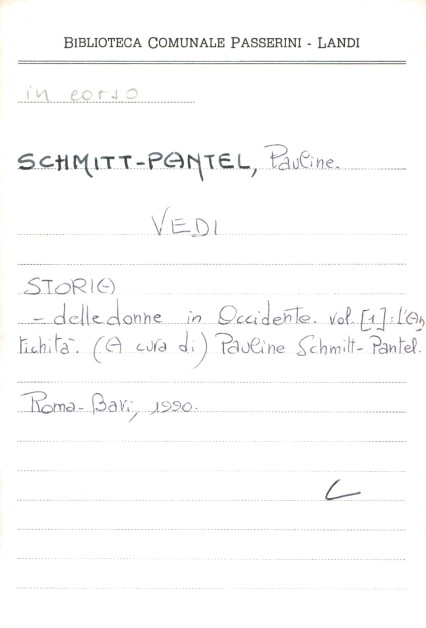 BIBLIOTECA COMUNALE PASSERINI - LANDI
in corso
SCHMITT-PANTEL, Pauline.
VEDI
STORIA
- delle donne in Occidente. vol. [1]: L'An
tichità. (A cura di) Pauline Schmitt-Pantel.
Roma-Bari, 1990.
C